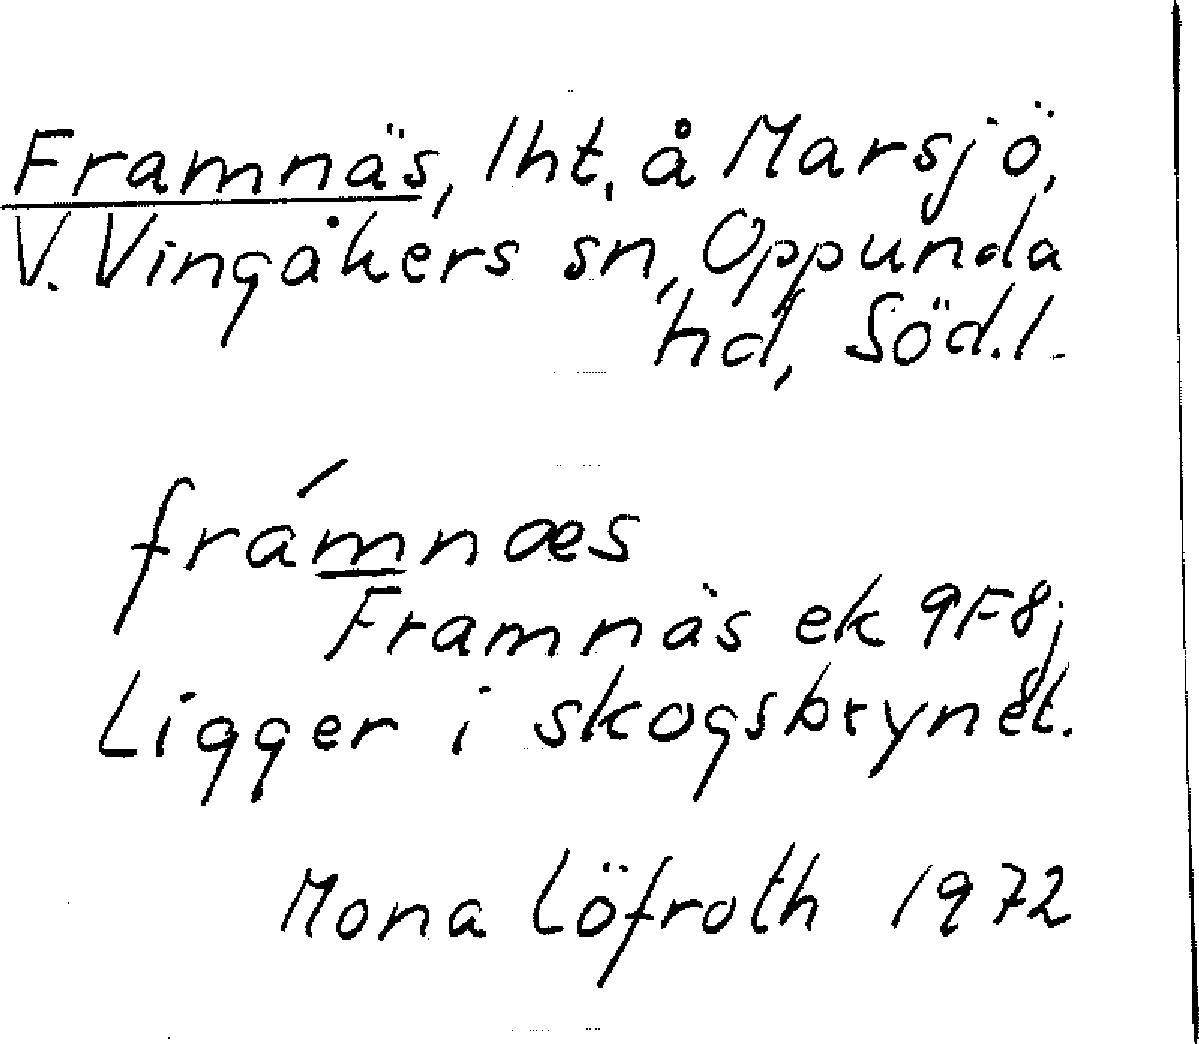 Framnäs, lht, å Marsjö,
V. Vingåkers sn, Oppunda
hd, Söd.l.
frámnæs
Framnäs ek 9F8j
Ligger i skogsbrynet.
Mona Löfroth 1972